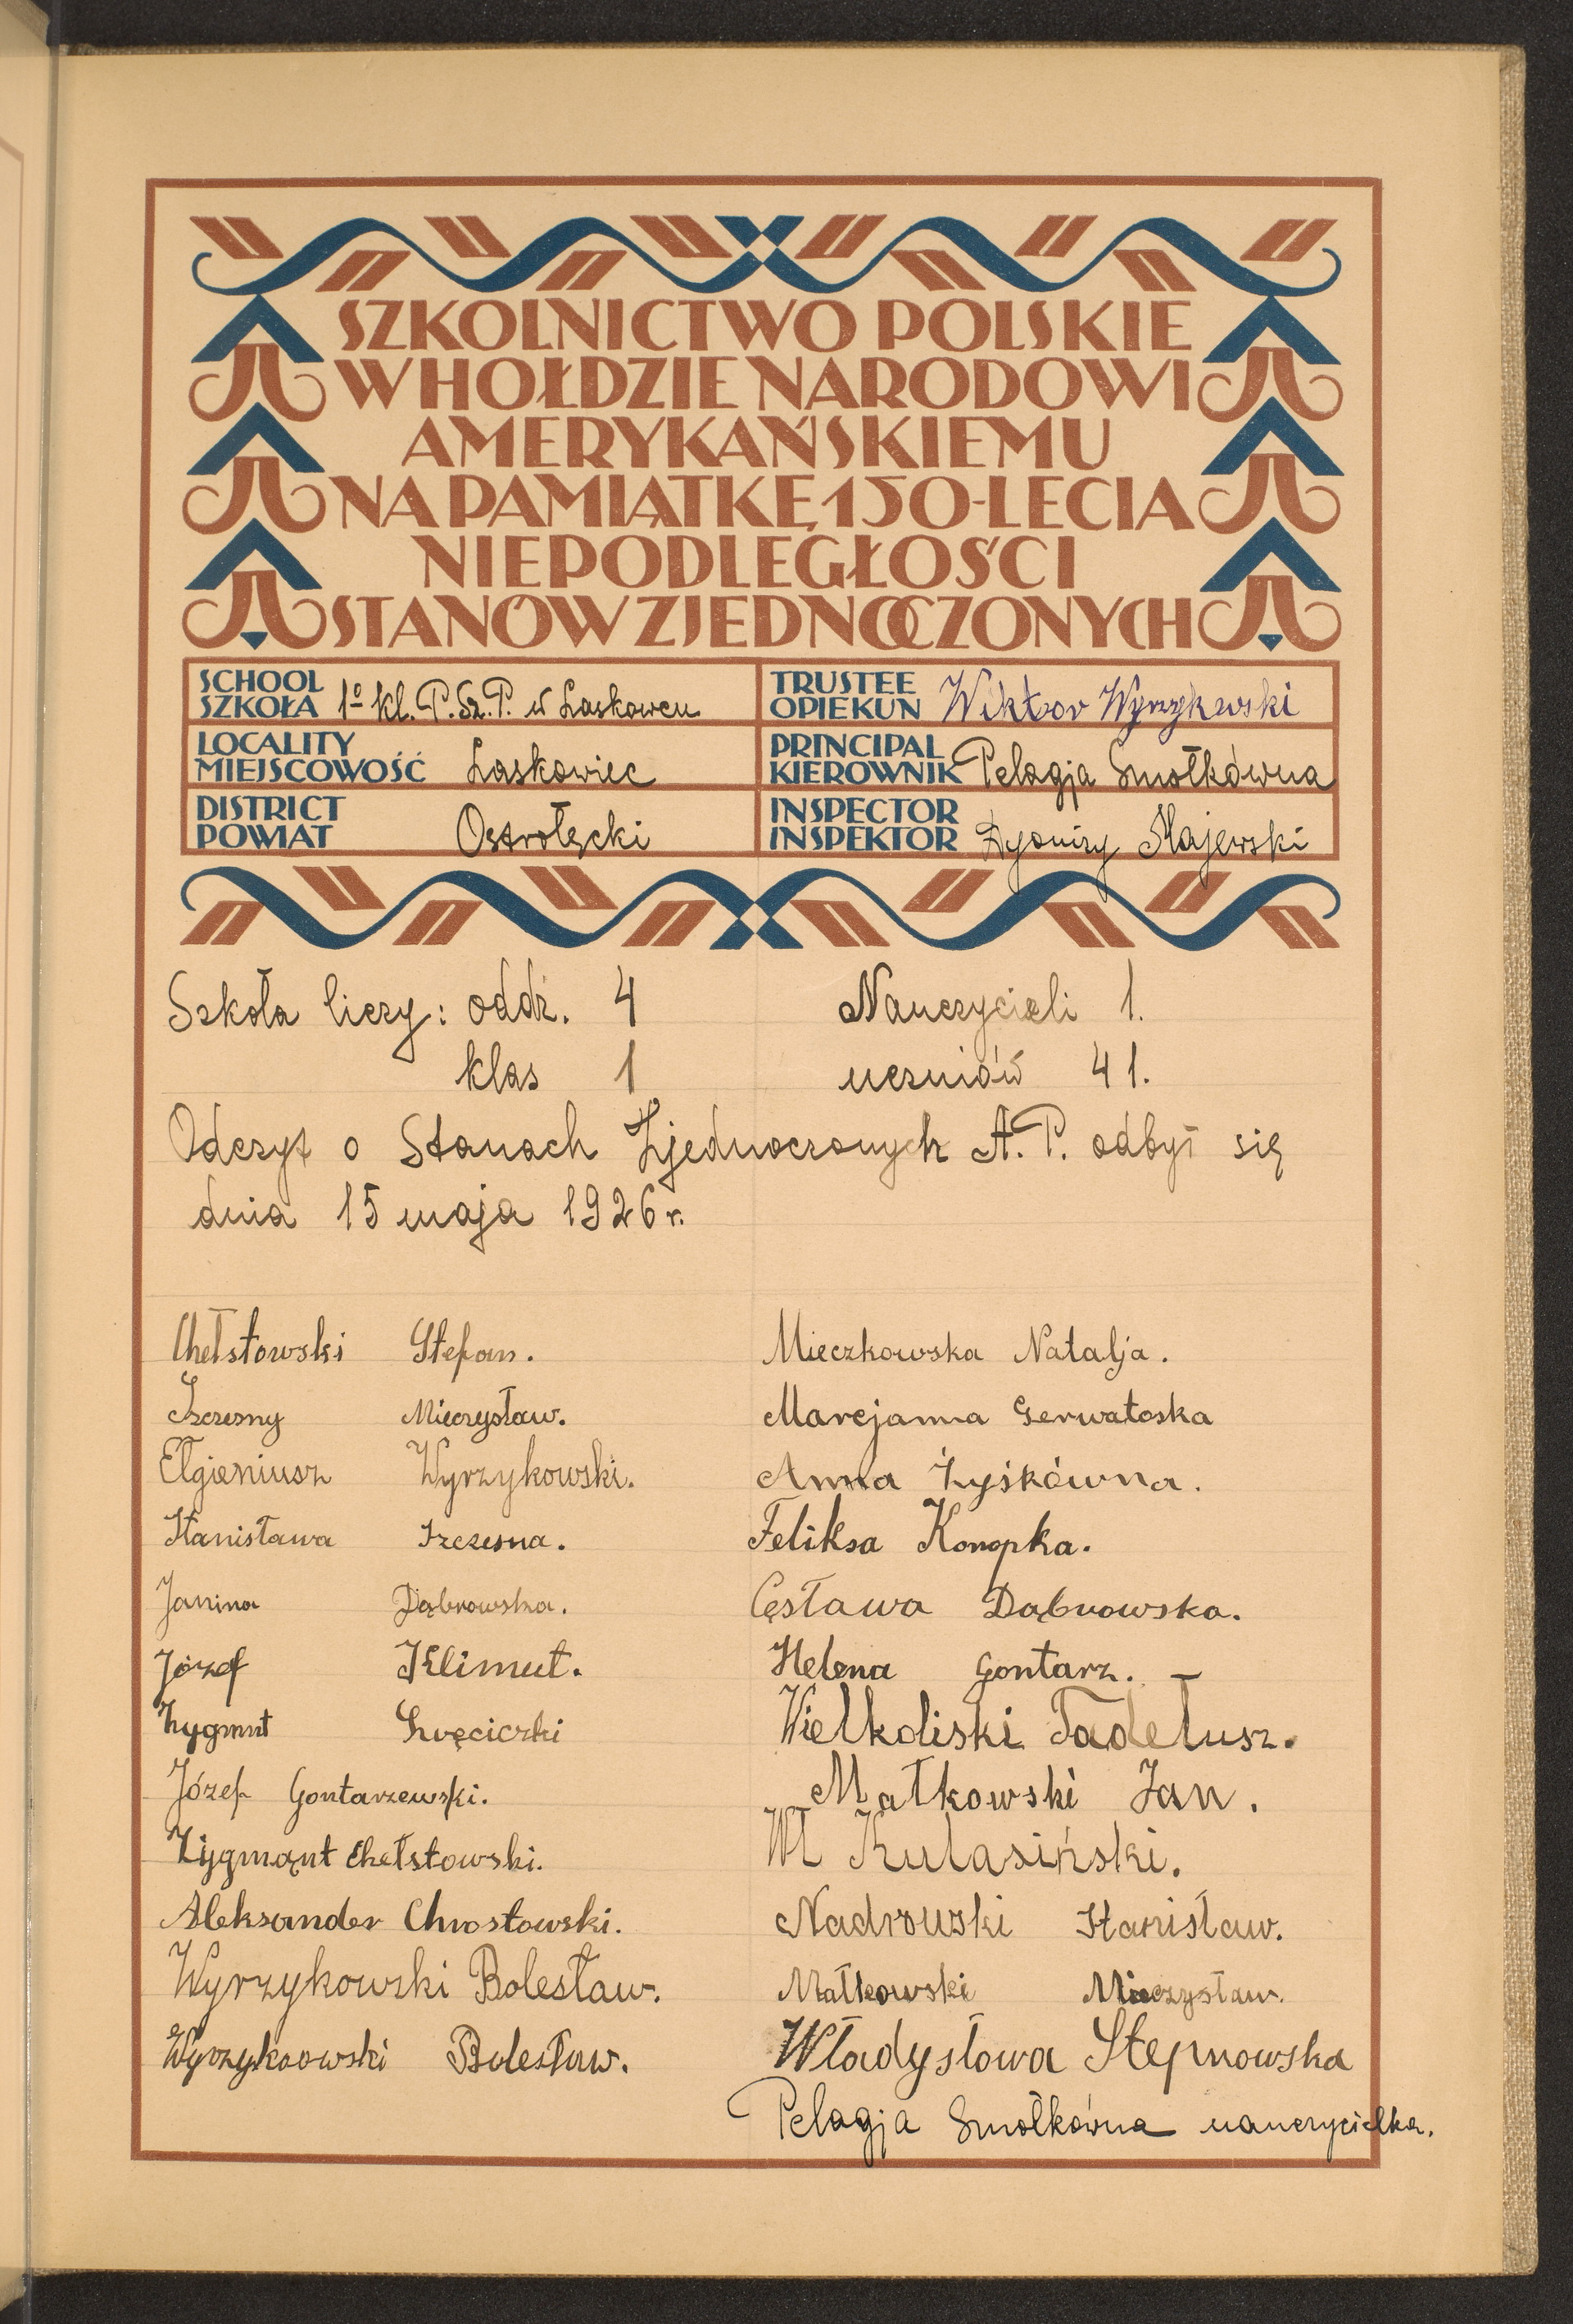 SZKOLNICTWO POLSKIE
W HOŁDZIE NARODOWI
AMERYKAŃSKIEMU
NA PAMIĄTKĘ 150-LECIA
NIEPODLEGŁOŚCI
STANÓW ZJEDNOCZONYCH
SCHOOL
SZKOŁA 1º kl. P. Sz. P. w Laskowcu
TRUSTEE
OPIEKUN Wiktor Wyrzykowski
LOCALITY
MIEJSCOWOŚĆ Laskowiec
PRINCIPAL
KIEROWNIK Pelagja Smołkówna
DISTRICT
POWIAT Ostrołęcki
INSPECTOR
INSPEKTOR Dyonizy Majewski
Szkoła liczy: oddz. 4 Nauczycieli 1.
klas 1 uczniów 41.
Odczyt o Stanach Zjednoczonych A. P. odbył się
dnia 15 maja 1926 r.
Chełstowski Stefan.
Szczesny Mieczysław.
Elgieniusz Wyrzykowski.
Stanisława Szczesna.
Janina Dąbrowska.
Józef Klimut.
Zygmnt
Józef Gontarzewski.
Zygmąnt Chełstowski.
Aleksander Chrostowski.
Wyrzykowski Bolesław.
Wyrzykoowski Bolesław.
Mieczkowska Natalja.
Marcjanna Gerwatoska
Anna Zyśkówna.
Feliksa Konopka.
Cęsława Dąbrowska.
Helena Gontarz.
Wielkoliski Tadeusz.
Małkowski Jan.
Wł Kulasiński.
Nadrowski Stanisław.
Małkowski Mieczysław.
Władysłowa Stepnowska
Pelagja Smołkówna nauczycielka.